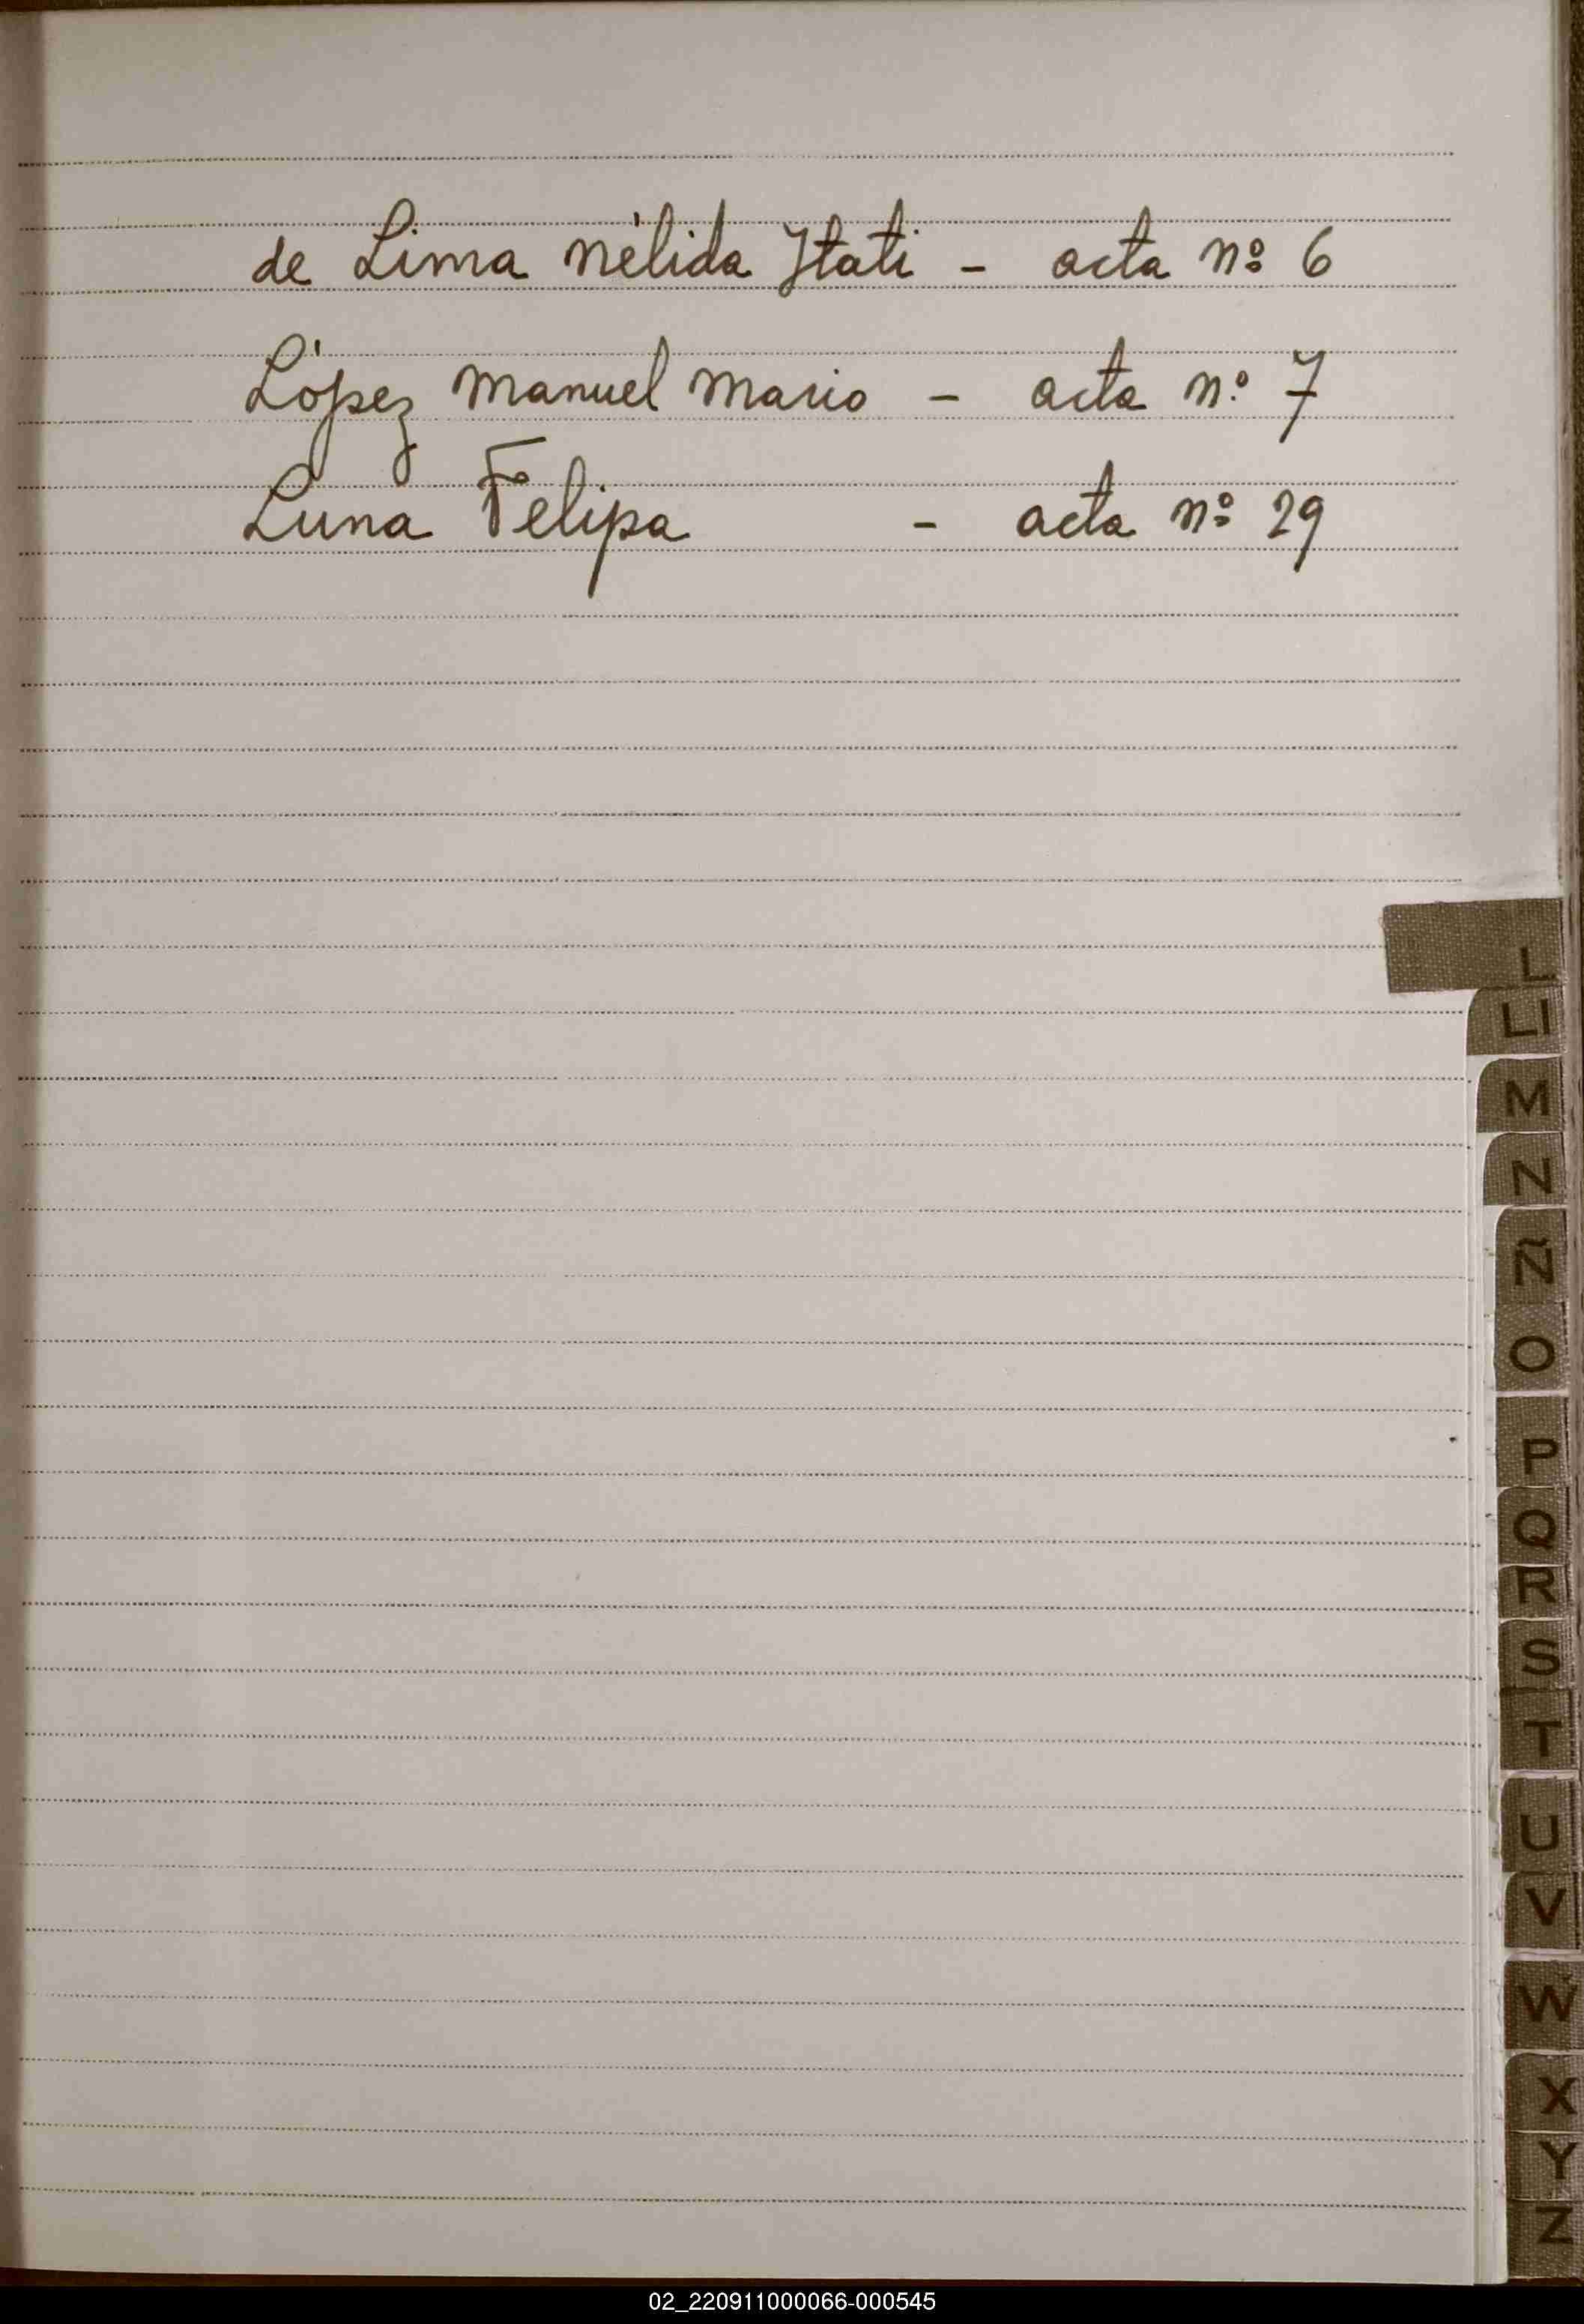 de Lima Nélida Itati - acta nº 6
López Manuel Mario - acta nº 7
Luna Felipa - acta nº 29
L
Ll
M
N
Ñ
O
P
Q
R
S
T
U
V
W
X
Y
Z
02_220911000066-000545